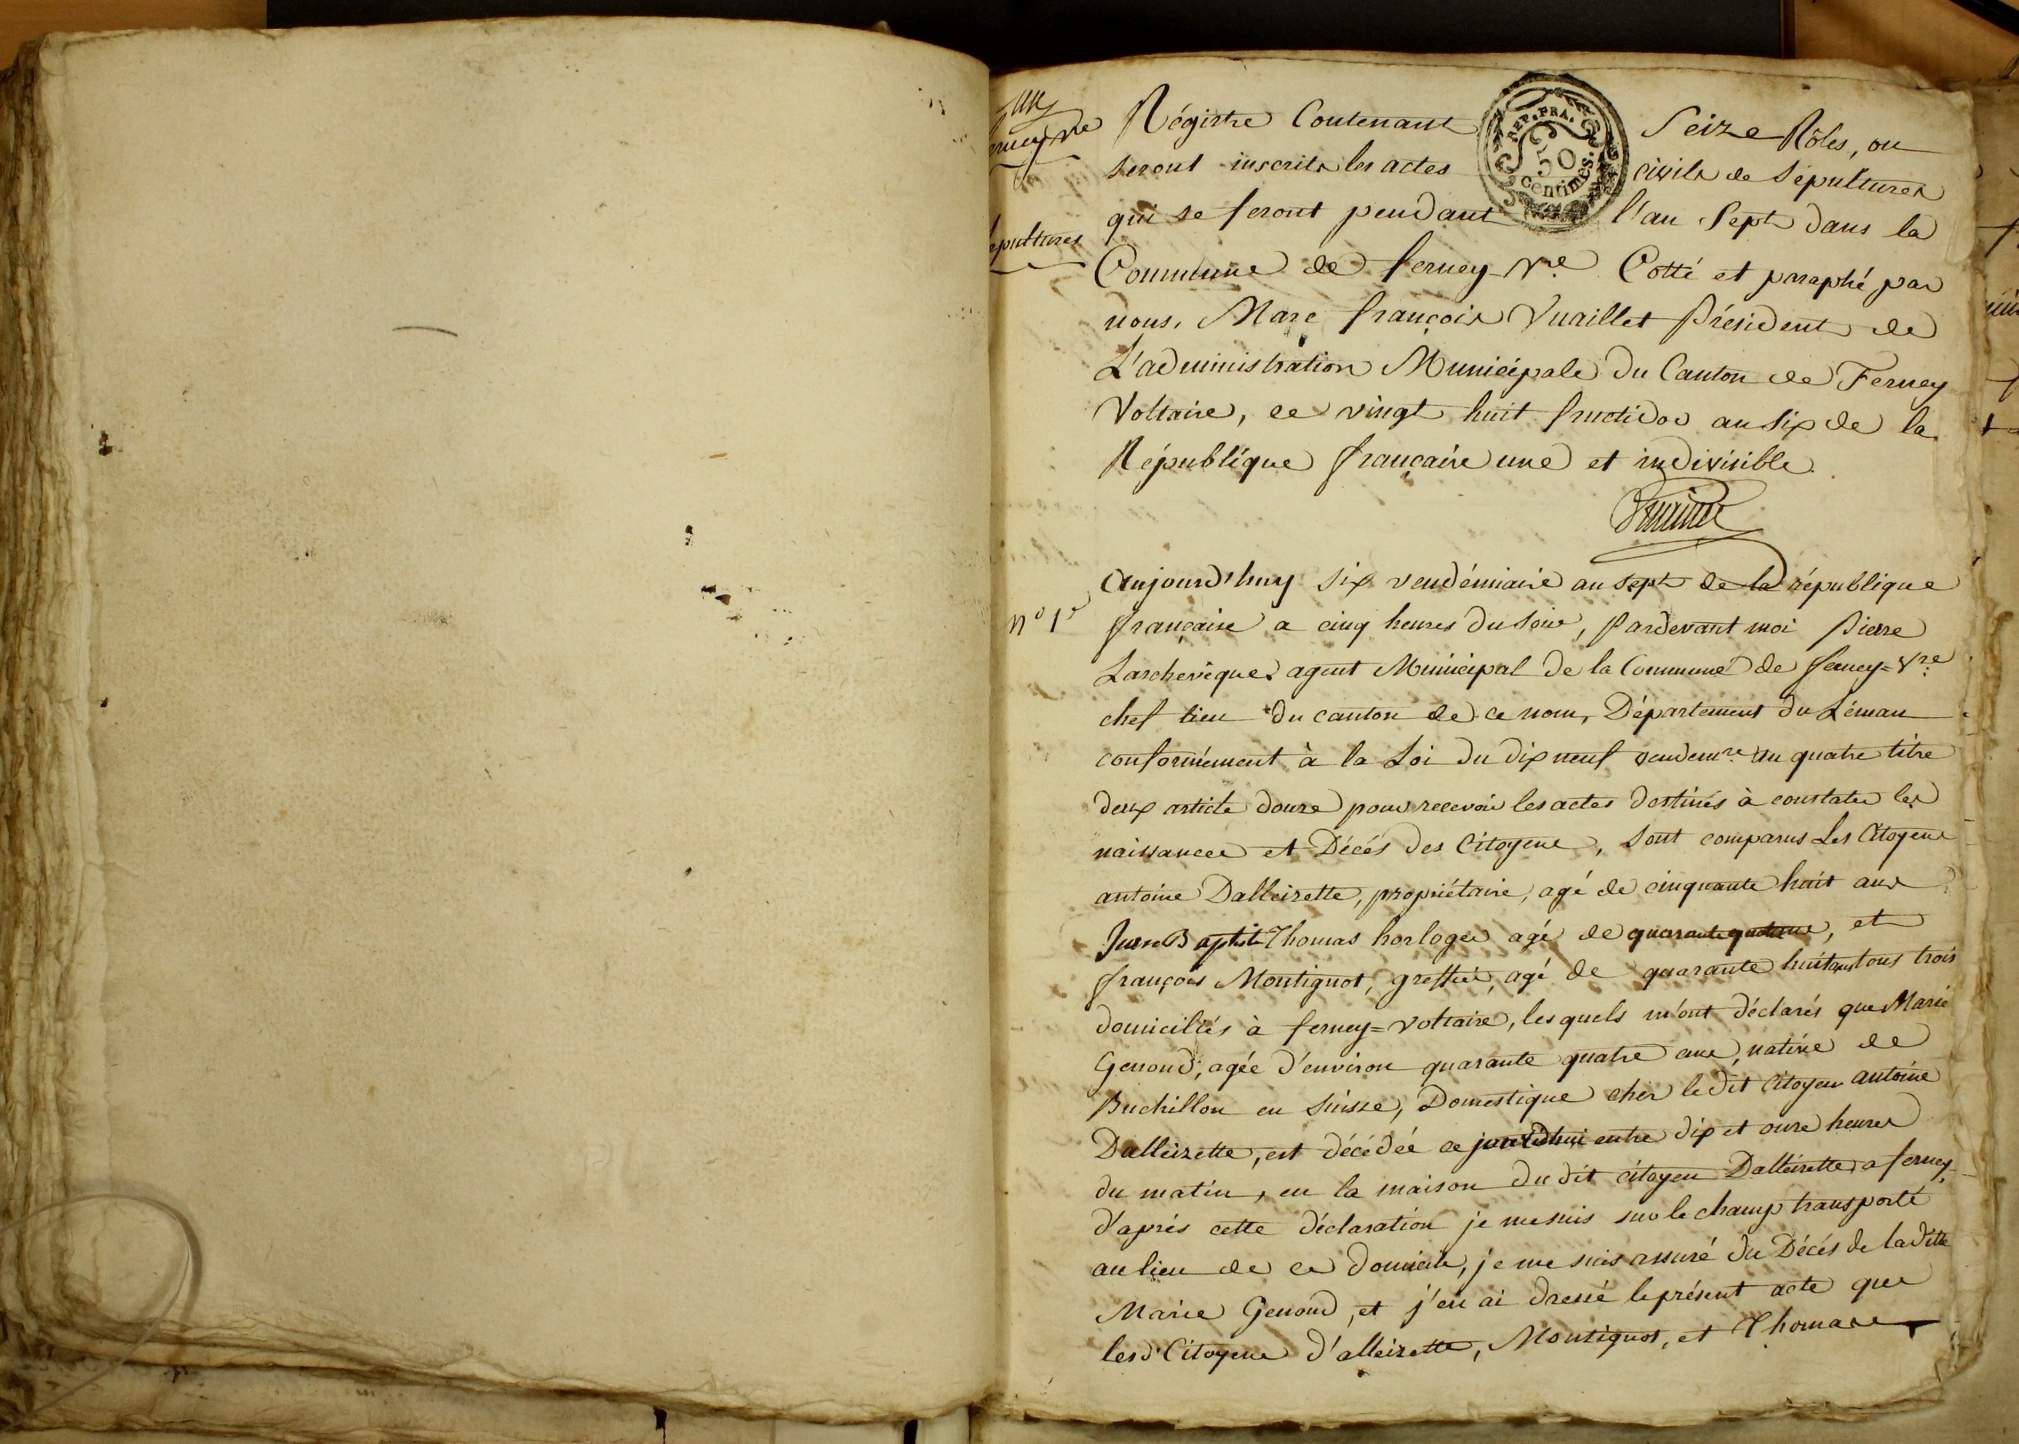 Régistre Contenant Seize Rôles, ou
REP. FRA.
50
Centimes.
seront inscrits les actes civils de Sépultures
qui se feront pendant l'an Sept dans la
Commune de ferney-Vre Cotté et paraphé par
nous, Marc françois Vuaillet Président de
L'administration Municipale du Canton de Ferney
Voltaire, ce vingt huit fructidor an six de la
République française une et indivisible.
Vuaillet
Aujourd'huy six vendémiaire an sept de la république
n° 1er
française a cinq heures du soir, pardevant moi pierre
Larchevêque agent Municipal de la Commune de ferney=Vre
chef lieu du canton de ce nom, Département du Léman
conformément à la Loi du dix neuf vendemre an quatre titre
deux article douze pour recevoir les actes destinés à constater les
naissances et Décés des Citoyens, sont comparus Les Citoyens
antoine Dalleizette, propriétaire, agé de cinquante huit ans
Jean Baptiste Thomas horloger agé de quarante quatre ans, et
françois Montignot, greffier, agé de quarante huit ans tous trois
domiciliés à ferney=Voltaire, lesquels m'ont déclarés que Marie
Genoud, agée d'environ quarante quatre ans, native de
Buchillon en Suisse, Domestique chez le dit Citoyen antoine
Dalleizette, est décédée ce jourd'hui entre dix et onze heures
du matin, en la maison du dit citoyen Dalleizette a ferney,
d'aprés cette déclaration je me suis sur le champ transporté
au lieu de ce domicile, je me suis assuré du Décés de la ditte
Marie Genoud, et j'en ai dressé le présent acte que
lesd. Citoyens d'alleizette, Montignot, et Thomas